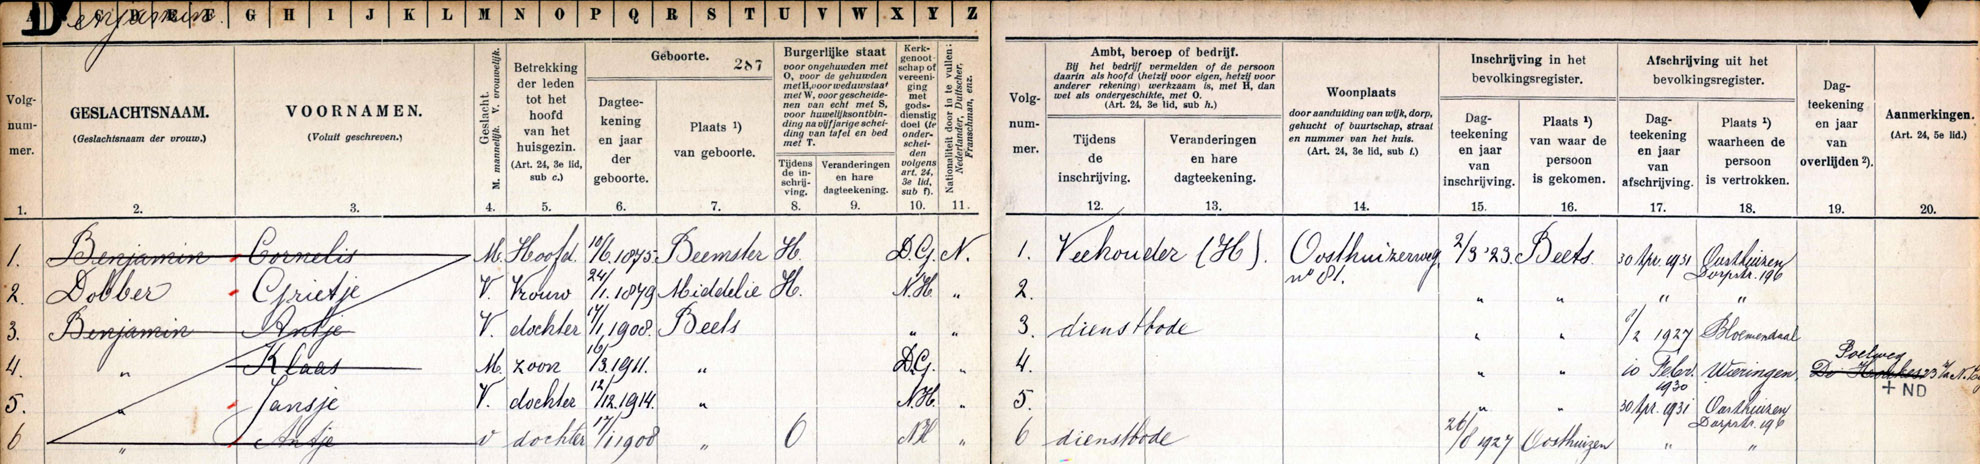 Benjamin.
G H I J K L M N O P Q R S T U V W X Y Z
Volg-
num-
mer.
GESLACHTSNAAM.
(Geslachtsnaam der vrouw.)
VOORNAMEN.
(Voluit geschreven.)
Geslacht.
M. mannelijk. V. vrouwelijk.
Betrekking
der leden
tot het
hoofd
van het
huisgezin.
(Art. 24, 3e lid,
sub c.)
Geboorte.
287
Dagtee-
kening
en jaar
der
geboorte.
Plaats ¹)
van geboorte.
Burgerlijke staat
voor ongehuwden met
O, voor de gehuwden
met H, voor weduwstaat
met W, voor gescheide-
nen van echt met S,
voor huwelijksontbin-
ding na vijfjarige schei-
ding van tafel en bed
met T.
Tijdens
de in-
schrij-
ving.
Veranderingen
en hare
dagteekening.
Kerk-
genoot-
schap of
vereeni-
ging
met
gods-
dienstig
doel (te
onder-
schei-
den
volgens
art. 24,
3e lid,
sub f).
Nationaliteit door in te vullen:
Nederlander, Duitscher,
Franschman, enz.
1. 2. 3. 4. 5. 6. 7. 8. 9. 10. 11.
1. Benjamin Cornelis M. Hoofd 10/6.1875. Beemster H. D.G. N.
2 Dobber Grietje V. Vrouw 24/1.1879 Middelie H. N.H. "
3. Benjamin Antje V. dochter 17/1.1908. Beets " "
4. " Klaas M. zoon 16/3.1911. " D.G. "
5. " Jansje V. dochter 12/12.1914. " N.H. "
6 " Antje v dochter 17/1 1908 " O NH "
Volg-
num-
mer.
Ambt, beroep of bedrijf.
Bij het bedrijf vermelden of de persoon
daarin als hoofd (hetzij voor eigen, hetzij voor
anderer rekening) werkzaam is, met H, dan
wel als ondergeschikte, met O.
(Art. 24, 3e lid, sub h.)
Tijdens
de
inschrijving.
Veranderingen
en hare
dagteekening.
Woonplaats
door aanduiding van wijk, dorp,
gehucht of buurtschap, straat
en nummer van het huis.
(Art. 24, 3e lid, sub i.)
Inschrijving in het
bevolkingsregister.
Dag-
teekening
en jaar
van
inschrijving.
Plaats ¹)
van waar de
persoon
is gekomen.
Afschrijving uit het
bevolkingsregister.
Dag-
teekening
en jaar
van
afschrijving.
Plaats ¹)
waarheen de
persoon
is vertrokken.
Dag-
teekening
en jaar
van
overlijden ²).
Aanmerkingen.
(Art. 24, 5e lid.)
12. 13. 14. 15. 16. 17. 18. 19. 20.
1. Veehouder (H). Oosthuizerweg no 81. 2/3 '23. Beets. 30 Apr. 1931 Oosthuizen Dorpstr. 196
2. " " " "
3. dienstbode " " 1/2 1927 Bloemendaal
4. " " 10 Febr. 1930 Wieringen, Poelweg
+ ND
5. " " 30 Apr. 1931 Oosthuizen Dorpstr. 196
6 dienstbode 26/8 1927 Oosthuizen " "